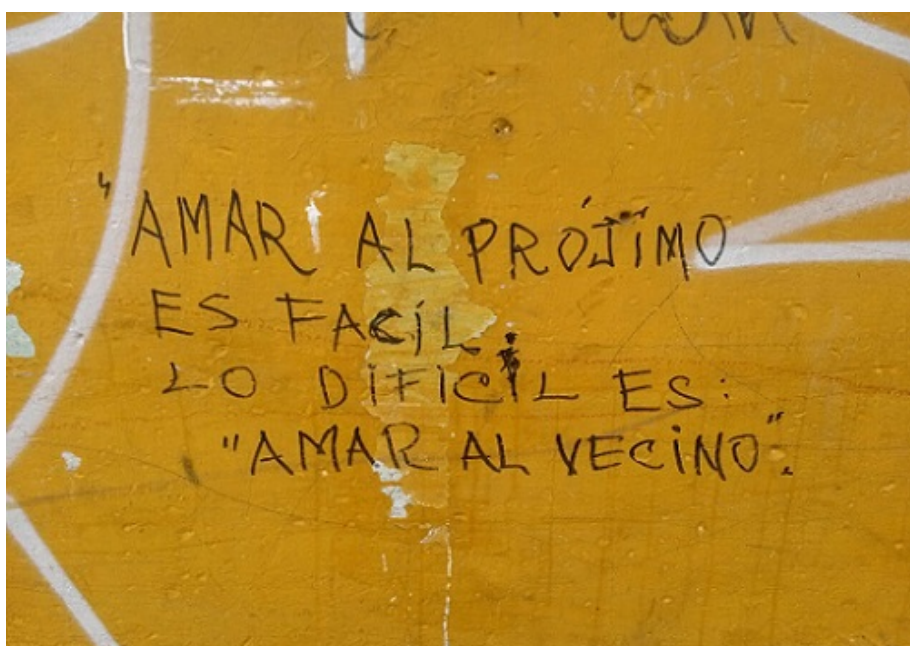 "AMAR AL PRÓJIMO
ES FACIL;
LO DIFICIL ES:
"AMAR AL VECINO".